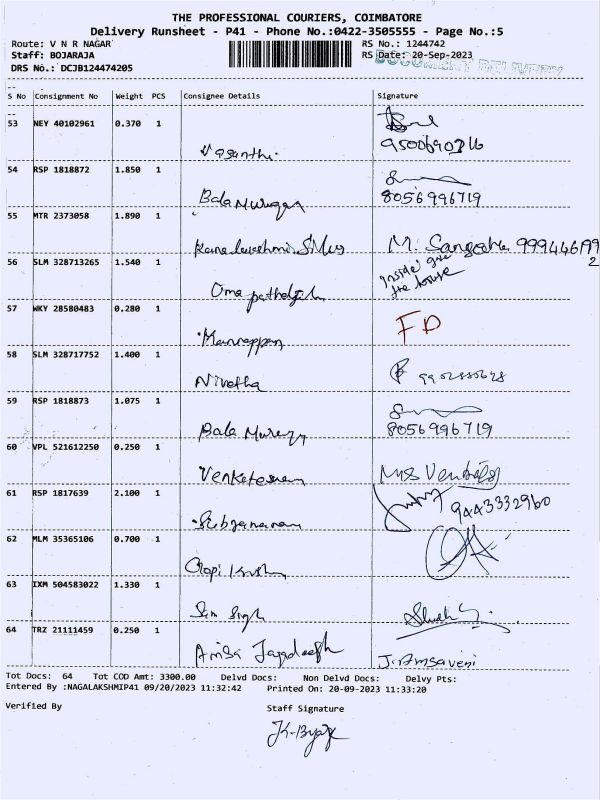 THE PROFESSIONAL COURIERS, COIMBATORE
Delivery Runsheet - P41 - Phone No.:0422-3505555 - Page No.:5
Route: V N R NAGAR RS No.: 1244742
Staff: BOJARAJA RS Date: 20-Sep-2023
DRS No.: DCJB124474205 DOCUMENT DELIVERY
S No Consignment No Weight PCS Consignee Details Signature
53 NEY 40102961 0.370 1
Vasanthi
54 RSP 1818872 1.850 1
Bala Murugan 8056996719
55 MTR 2373058 1.890 1
M. Sangeetha
56 SLM 328713265 1.540 1
Inside
the house
57 WKY 28580483 0.280 1 FD
58 SLM 328717752 1.400 1
Nivetha
59 RSP 1818873 1.075 1
Bala 8056996719
60 VPL 521612250 0.250 1
Mrs
61 RSP 1817639 2.100 1
9443332960
62 MLM 35365106 0.700 1
Gopi
63 IXM 504583022 1.330 1
64 TRZ 21111459 0.250 1
Jagadeesh J. Amsaveni
Tot Docs: 64 Tot COD Amt: 3300.00 Delvd Docs: Non Delvd Docs: Delvy Pts:
Entered By :NAGALAKSHMIP41 09/20/2023 11:32:42 Printed On: 20-09-2023 11:33:20
Verified By Staff Signature